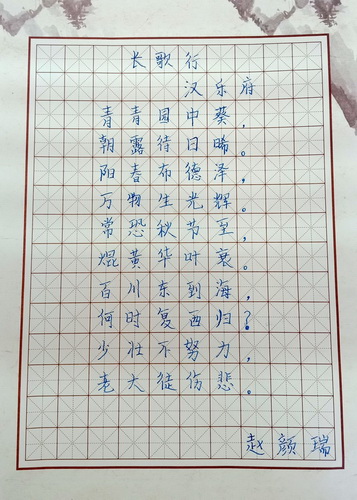 长歌行
汉乐府
青青园中葵，
朝露待日晞。
阳春布德泽，
万物生光辉。
常恐秋节至，
焜黄华叶衰。
百川东到海，
何时复西归？
少壮不努力，
老大徒伤悲。
赵颜瑞